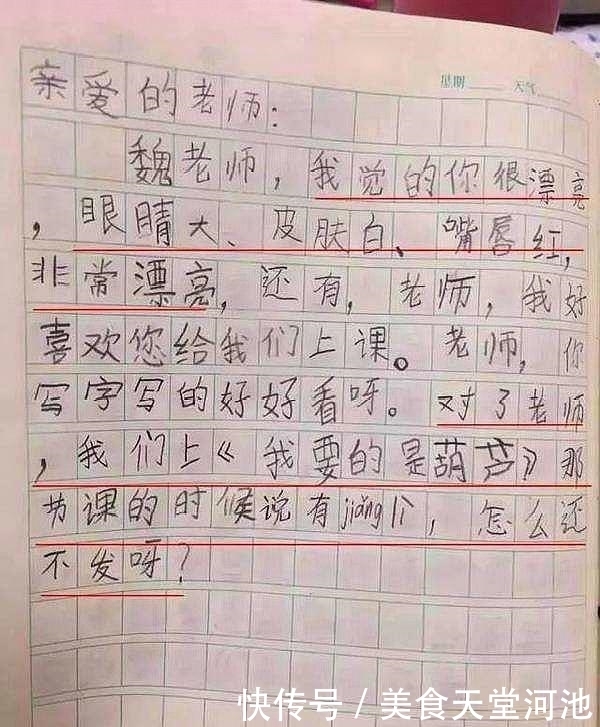 星期 天气
亲爱的老师:
魏老师,我觉的你很漂亮
,眼睛大、皮肤白、嘴唇红,
非常漂亮,还有,老师,我好
喜欢您给我们上课。老师,你
写字写的好好看呀。对了老师
,我们上《我要的是葫芦》那
节课的时候说有jiǎng lì,怎么还
不发呀?
快传号 / 美食天堂河池